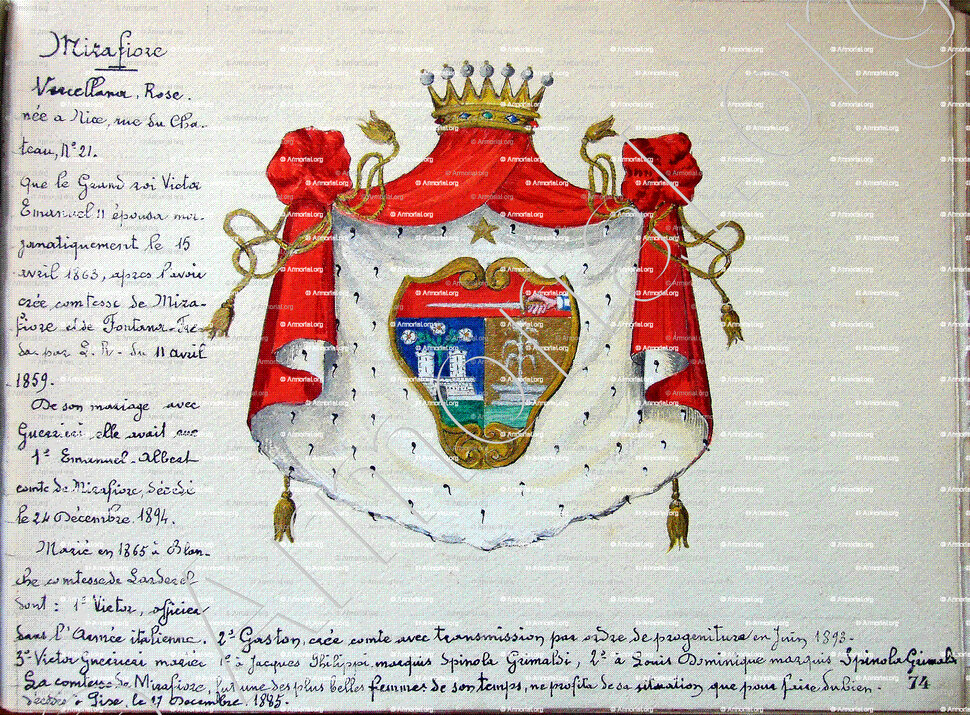 Mirafiore
Vercellana, Rose.
née a Nice, rue du Cha-
teau, N° 21.
que le Grand roi Victor
Emanuel II épousa mor-
ganatiquement le 15
avril 1863, apres l'avoir
crée comtesse de Mira-
fiore et de Fontana-Fre-
da par L. R. du 11 avril
1859.
De son mariage avec
Guerrieri elle avait
1° Emanuel-Albert
comte de Mirafiore, décédé
le 24 Décembre 1894.
Marié en 1865 à Blan-
che comtesse de Larderel
dont : 1° Victor, officier
dans l'Armée italienne. 2° Gaston, crée comte avec transmission par ordre de progeniture en Juin 1893.
3° Victor Guerrieri mariée 1° à Jacques Philippi, marquis Spinola Grimaldi, 2° à Louis Dominique marquis Spinola Grimaldi
La comtesse de Mirafiore, fut une des plus belles femmes de son temps, ne profita de sa situation que pour faire du bien.
décédée à Pise, le 27 Decembre 1885.
74
© Armorial.org